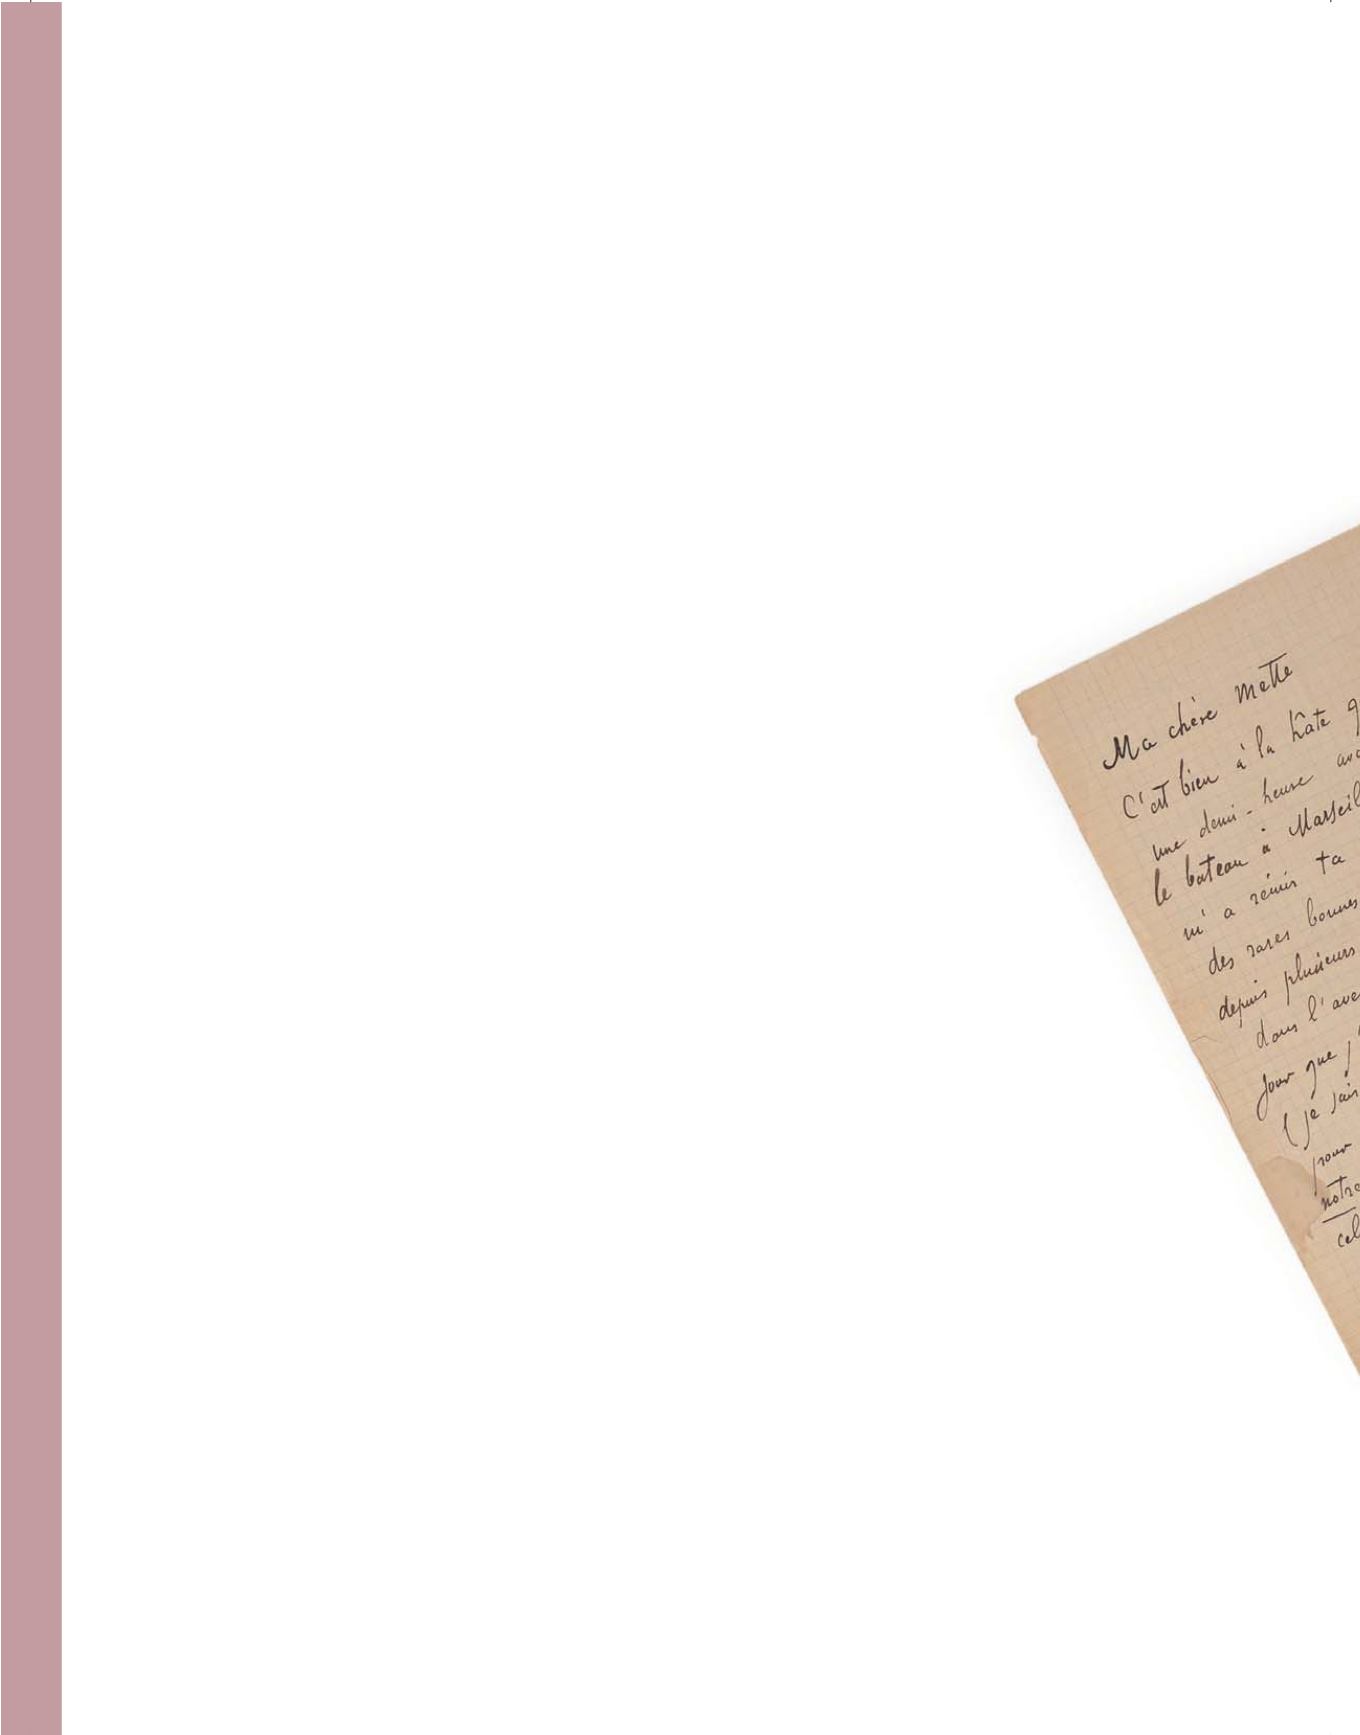 Ma chère Mette
C'est bien à la hâte q
une demi-heure ava
le bateau à Marseil
m'a ta
des rares bonnes
depuis plusieurs
dans l'ave
jour que j'
(je sais
pour
notre
cel